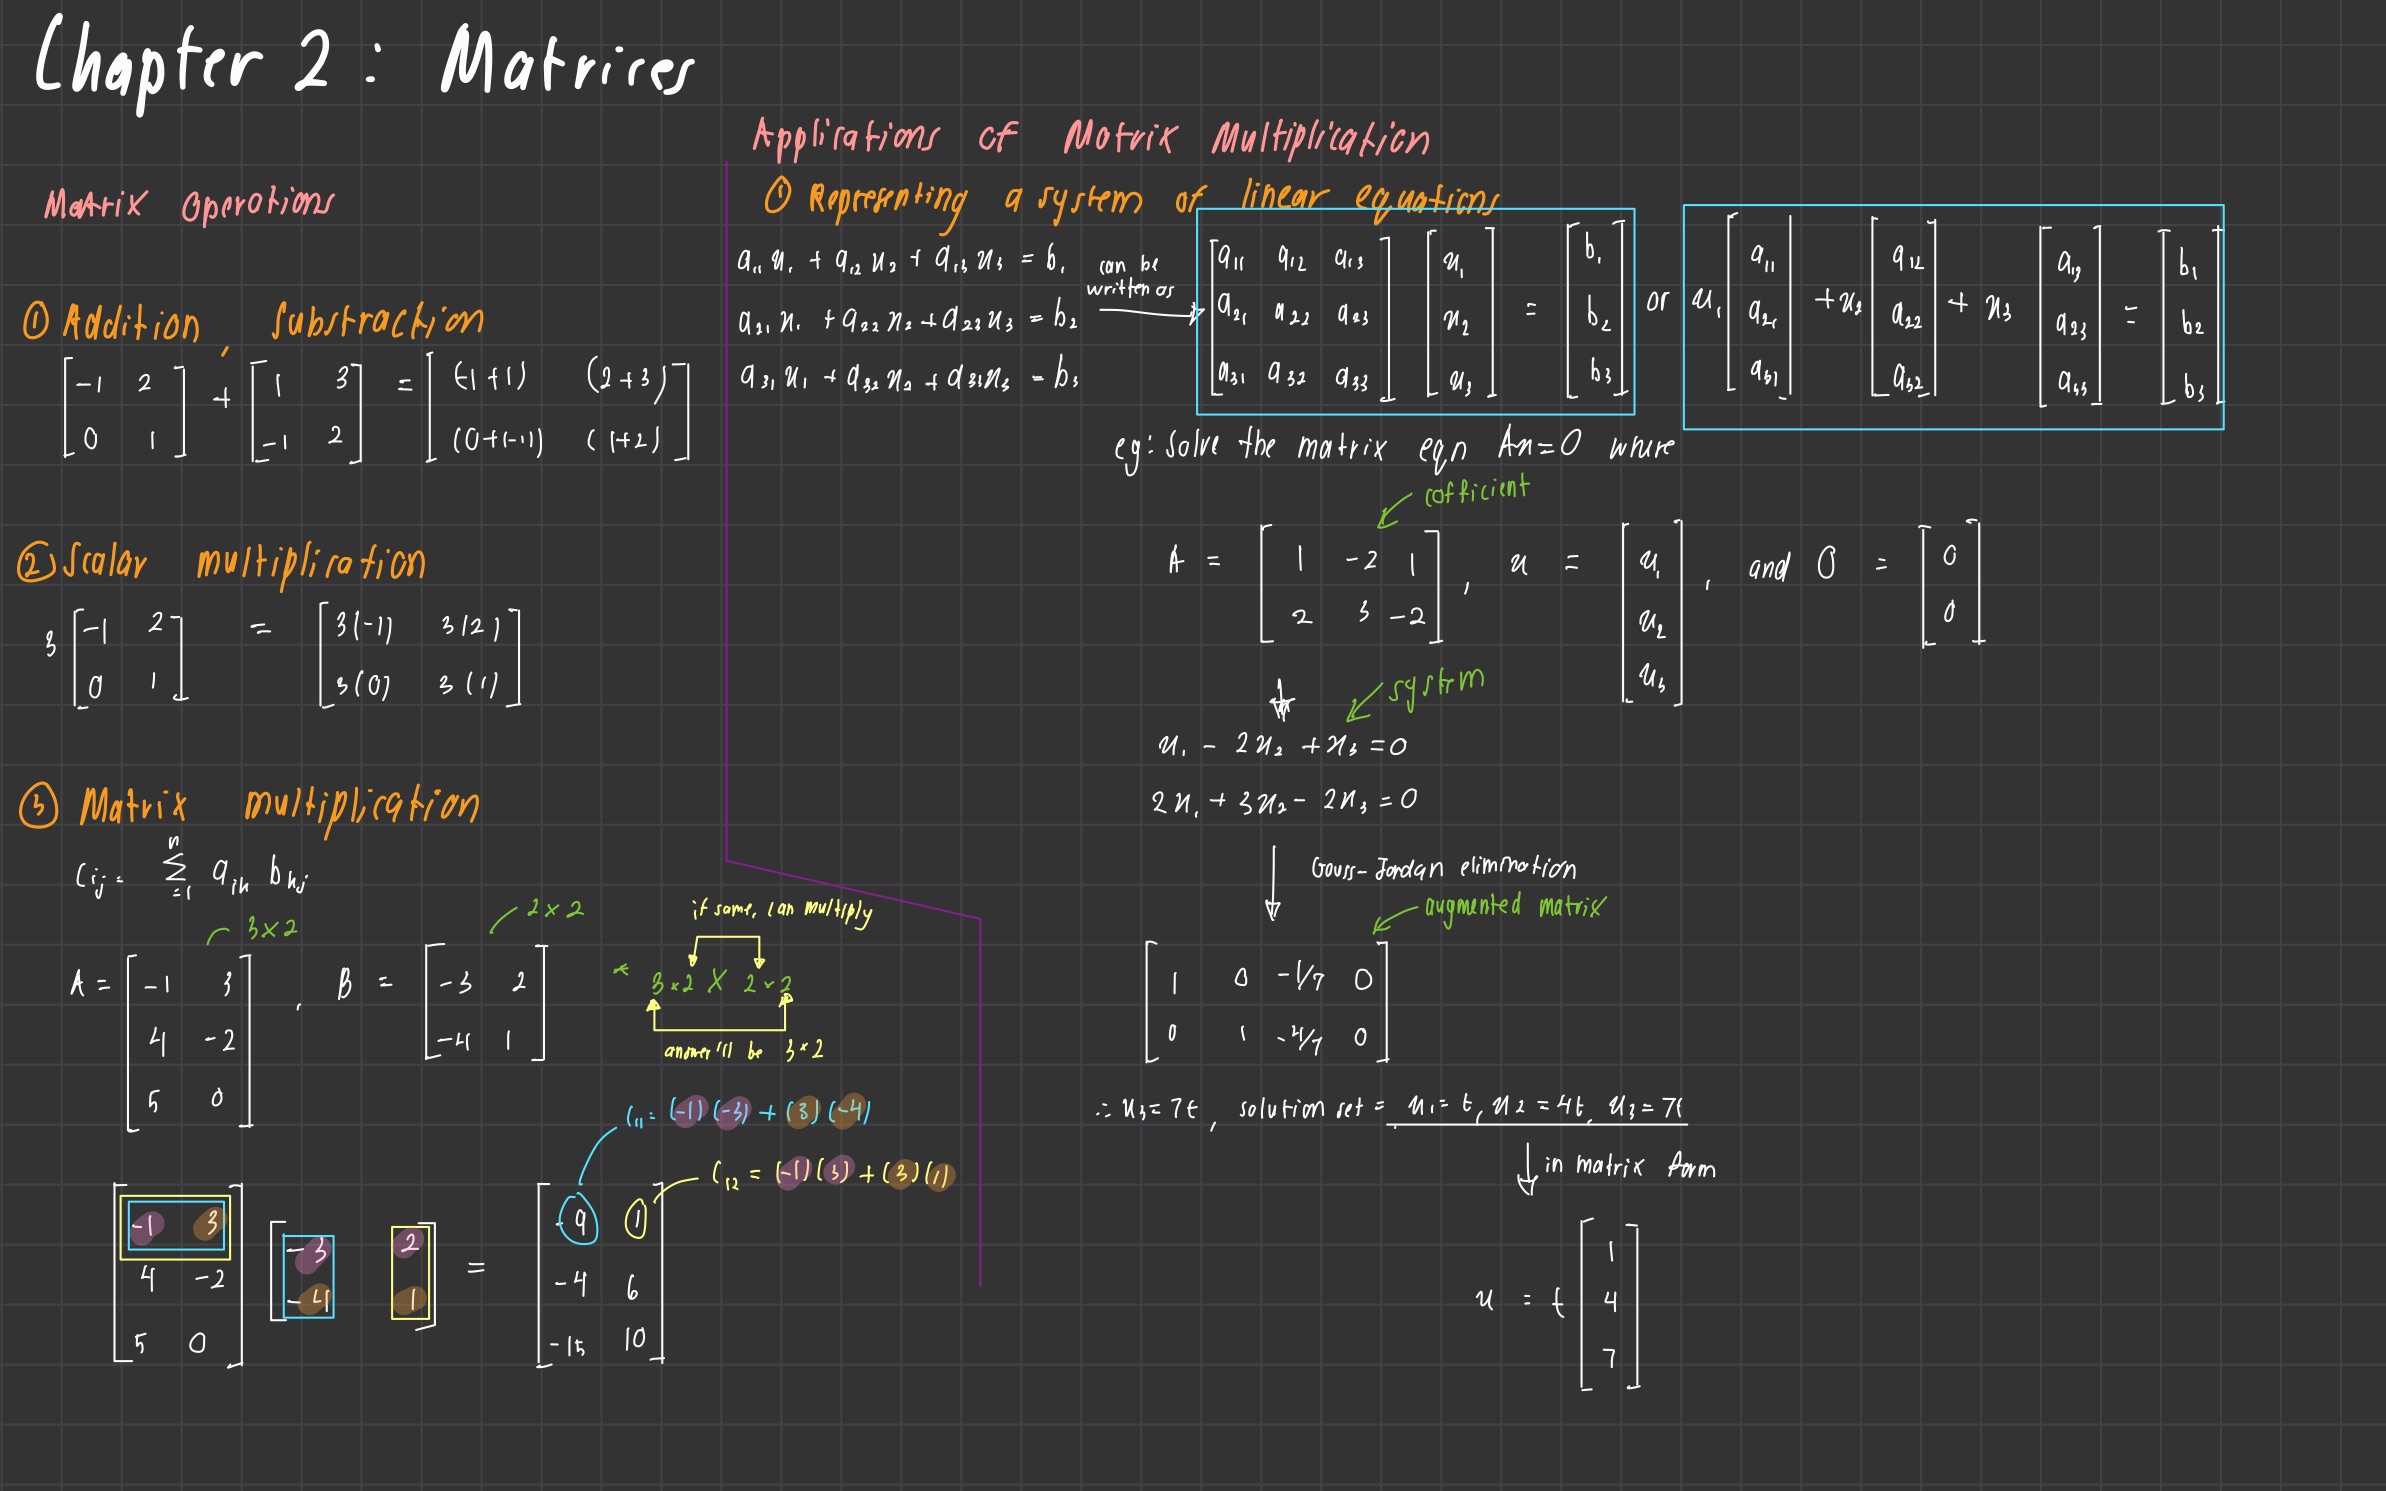 Chapter 2 : Matrices
Matrix Operations
① Addition, Substraction
[-1 2; 0 1] + [1 3; -1 2] = [(-1+1) (2+3); (0+(-1)) (1+2)]
② Scalar multiplication
3 [-1 2; 0 1] = [3(-1) 3(2); 3(0) 3(1)]
③ Matrix multiplication
Cij = n Σ =1 aik bkj
3×2
2×2
A = [-1 3; 4 -2; 5 0] , B = [-3 2; -4 1]
if same, can multiply
* 3×2 X 2×2
answer'll be 3×2
C11 = (-1)(-3) + (3)(-4)
C12 = (-1)(3) + (3)(1)
[-1 3; 4 -2; 5 0] [-3 2; -4 1] = [-9 1; -4 6; -15 10]
Applications of Matrix Multiplication
① Representing a system of linear equations
a11 x1 + a12 x2 + a13 x3 = b1
a21 x1 + a22 x2 + a23 x3 = b2
a31 x1 + a32 x2 + a33 x3 = b3
can be
written as
[a11 a12 a13; a21 a22 a23; a31 a32 a33] [x1; x2; x3] = [b1; b2; b3] or x1 [a11; a21; a31] + x2 [a12; a22; a32] + x3 [a13; a23; a33] = [b1; b2; b3]
eg: solve the matrix eqn Ax=0 where
cofficient
A = [1 -2 1; 2 3 -2] , x = [x1; x2; x3] , and 0 = [0; 0]
system
x1 - 2x2 + x3 = 0
2x1 + 3x2 - 2x3 = 0
Gauss-Jordan elimination
augmented matrix
[1 0 -1/7 0; 0 1 -4/7 0]
∴ x3 = 7t , solution set = x1 = t, x2 = 4t, x3 = 7t
in matrix form
x = t [1; 4; 7]